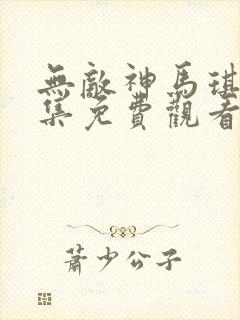 無敵神馬琪
集免費觀看
蕭少公子